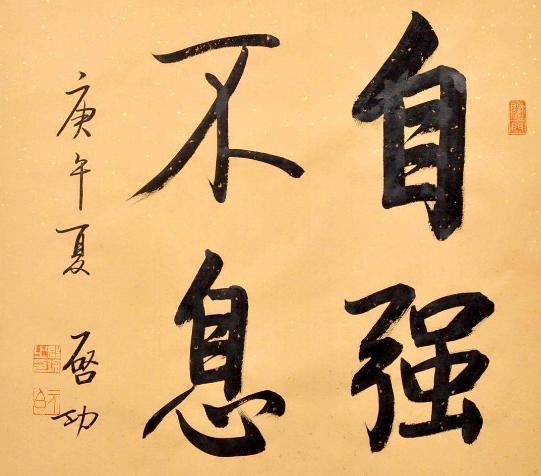 自强
不息
庚午夏 启功